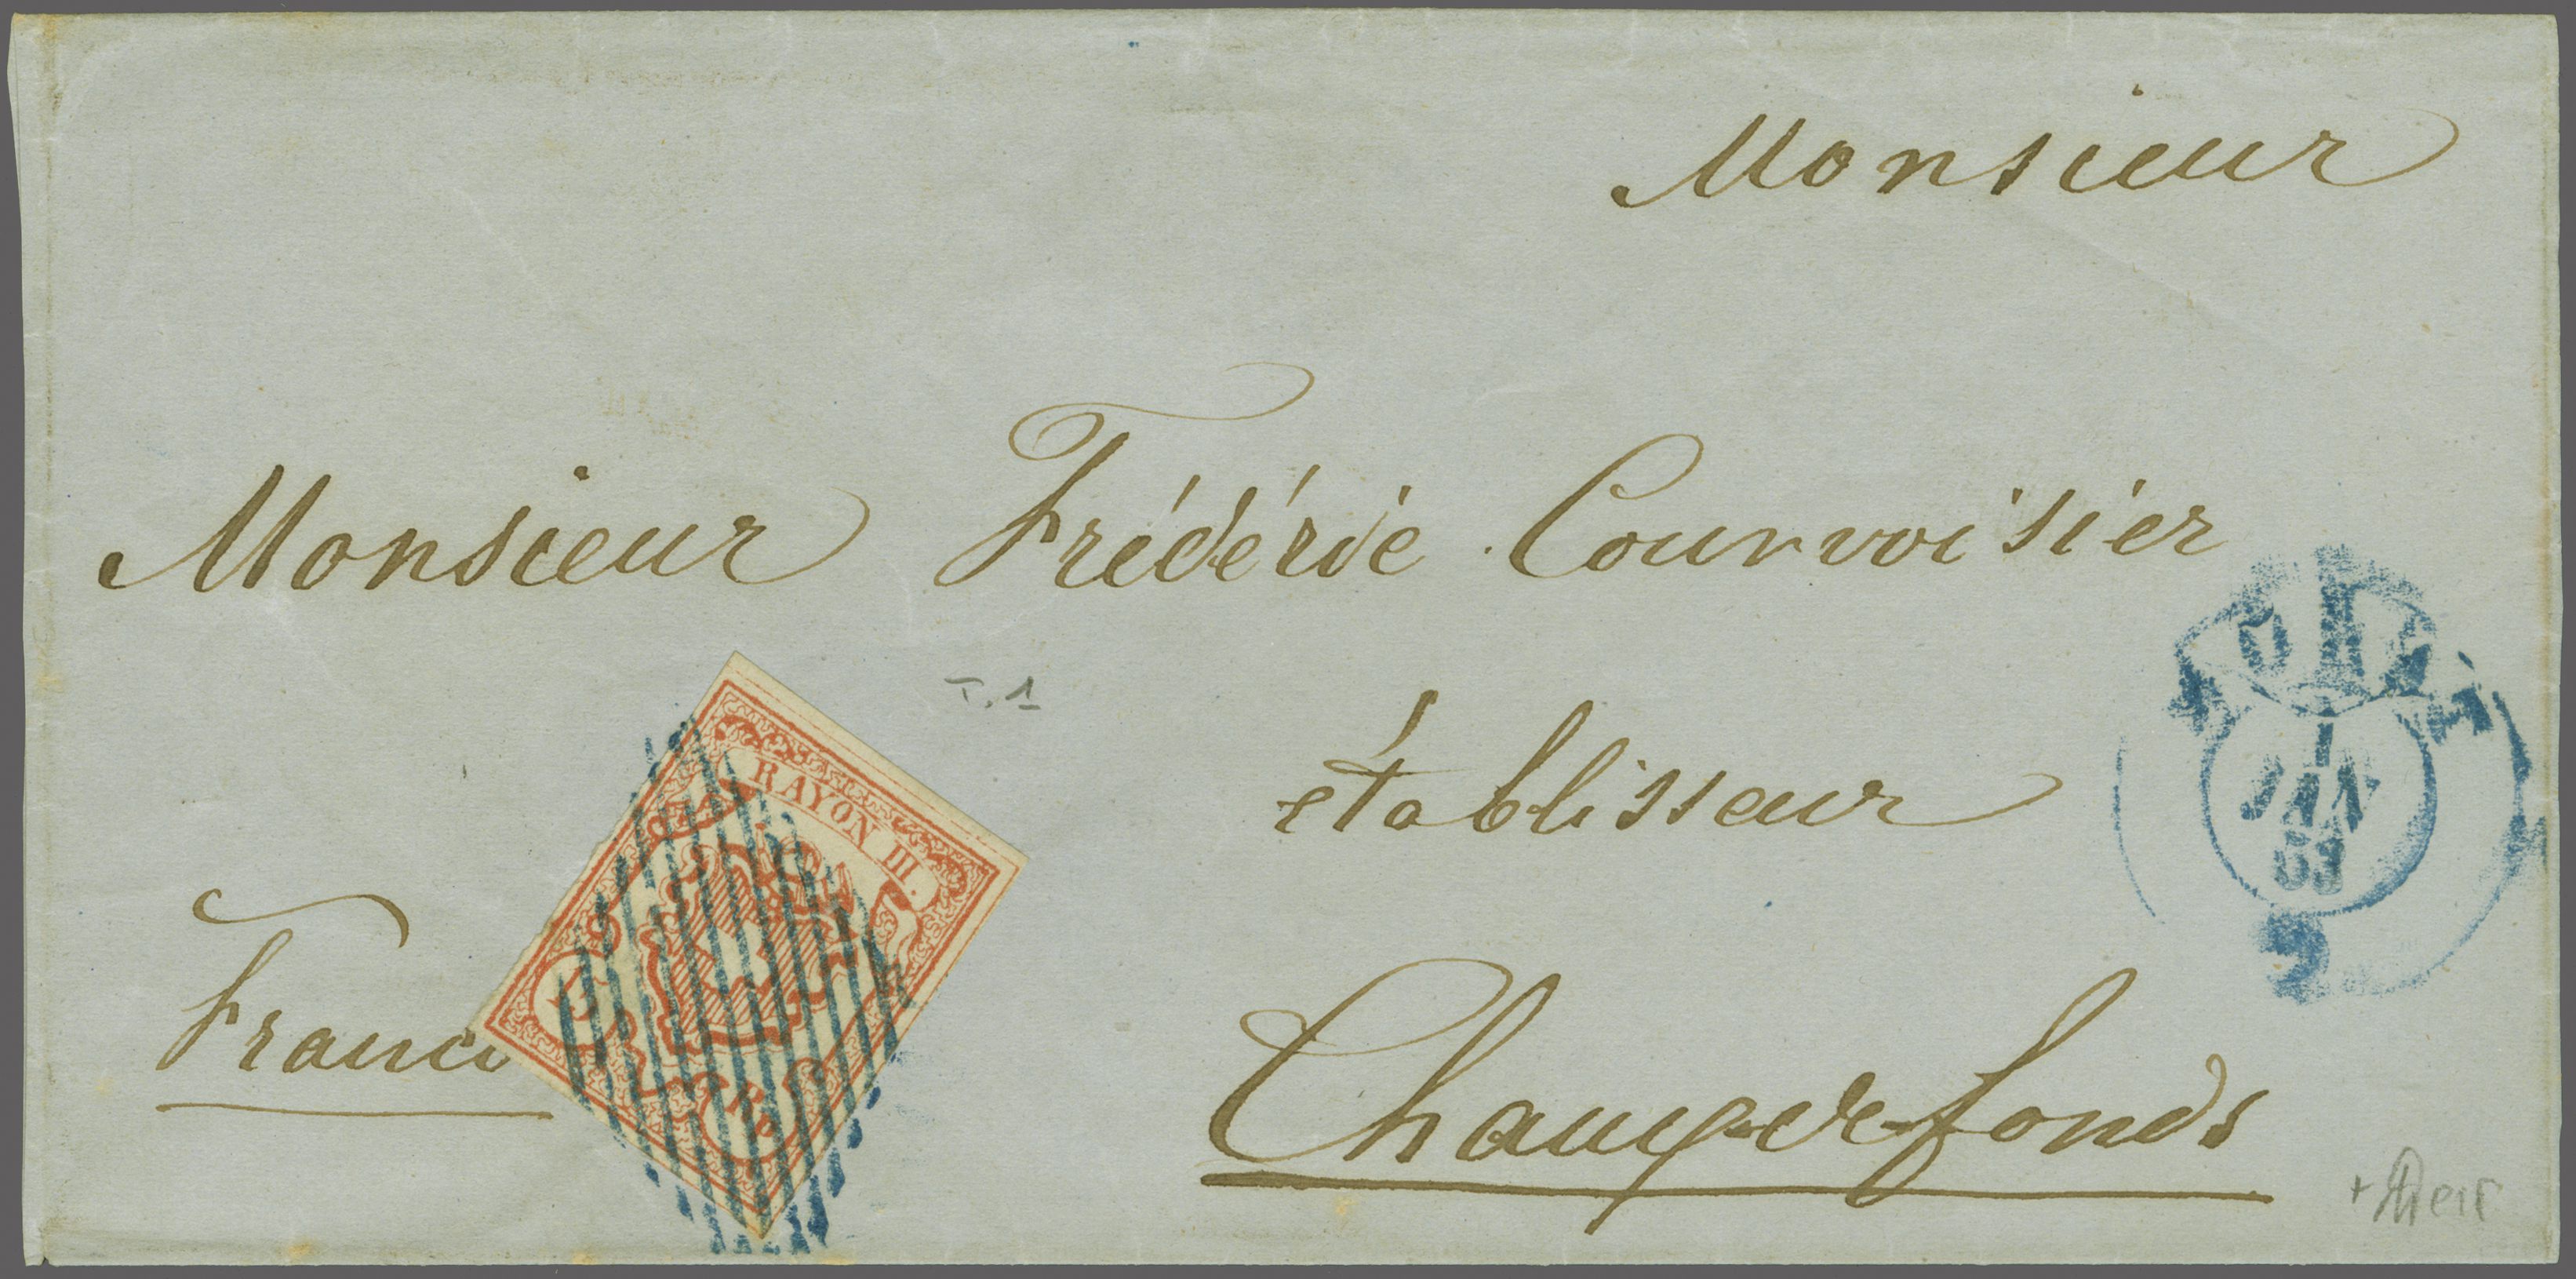 Monsieur
Monsieur Frédéric Courvoisier
T. 1
établisseur
RAYON III.
JAN
53
2
Franco
Chaux-de-fonds